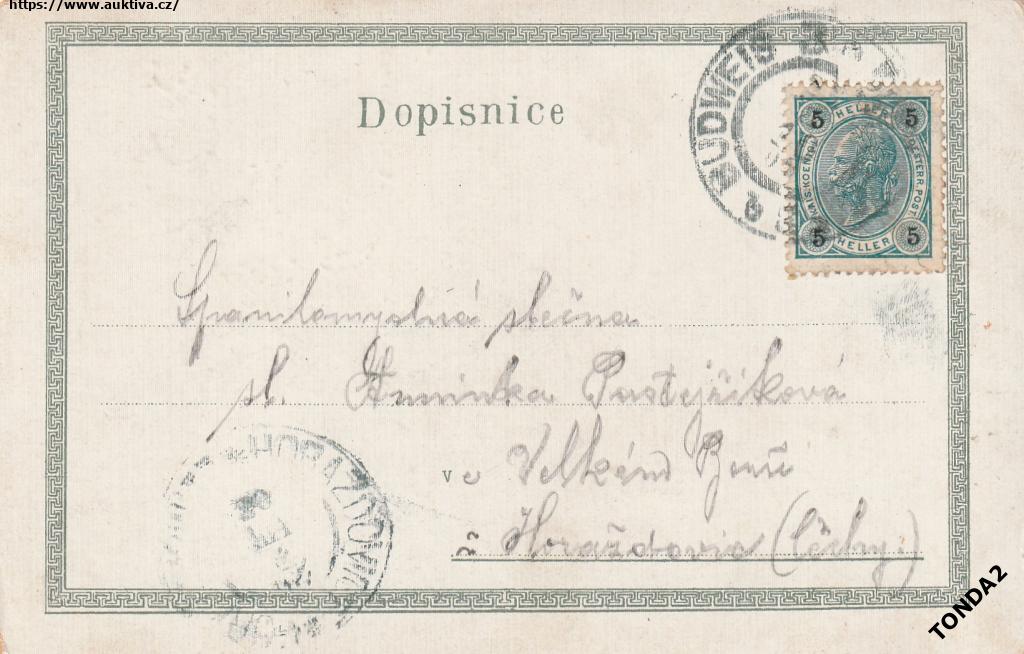 https://www.auktiva.cz/
Dopisnice
BUDWEIS
5 HELLER 5
KAIS. KOENIGL. OESTERR. POST.
5 HELLER 5
Spanilomyslná slečna
sl. Anninka Pastejříková
ve Velkém
Horaždovic (Čechy.)
HORAŽĎOVIC
TONDA2